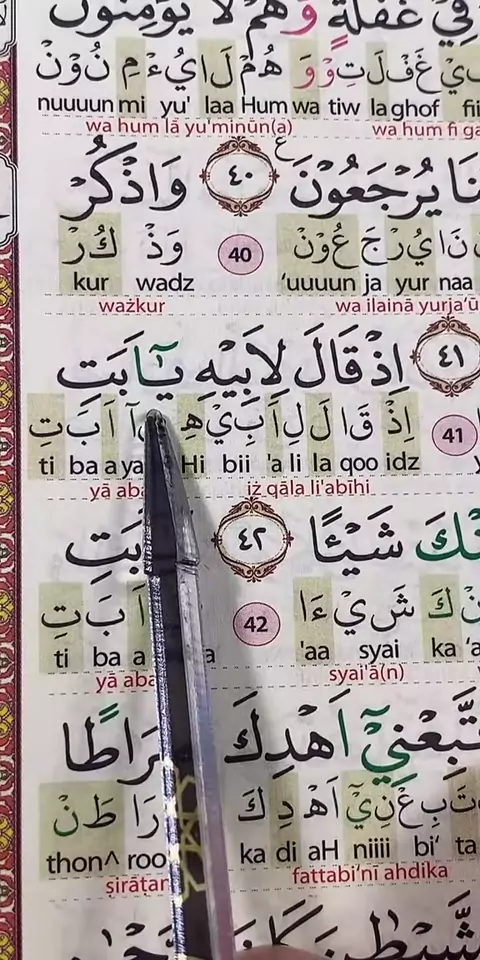 فِيْ غَفْلَةٍ وَّهُمْ لَا يُؤْمِنُوْنَ
يْ غَ فْ لَ تِ وْ وَ هُمْ لَا يُءْ مِ نُوْنْ
nuuuun mi yu' laa Hum wa tiw la ghof fii
wa hum lā yu'minūn(a) wa hum fī ga
نَا يُرْجَعُوْنَ ࣖ ٤٠ وَاذْكُرْ
نَا يُرْ جَ عُوْنْ 40 وَذْ كُرْ
kur wadz 'uuuun ja yur naa
ważkur wa ilainā yurja'ū
٤١ اِذْ قَالَ لِاَبِيْهِ يٰٓاَبَتِ
41 اِذْ قَا لَ لِ اَ بِيْ هِ اَ بَ تِ
ti ba a ya Hi bii 'a li la qoo idz
yā aba iż qāla li'abīhi
نْكَ شَيْـًٔا ٤٢ بَتِ
نْ كَ شَيْ ءَا 42 اَ بَ تِ
ti ba a a 'aa syai ka 'a
yā aba syai'ā(n)
تَّبِعْنِيْٓ اَهْدِكَ رَاطًا
تَ بِعْ نِيْٓ اَهْ دِ كَ رَا طَنْ
thon^ roo ka di aH niiii bi' ta
ṣirāṭan fattabi'nī ahdika